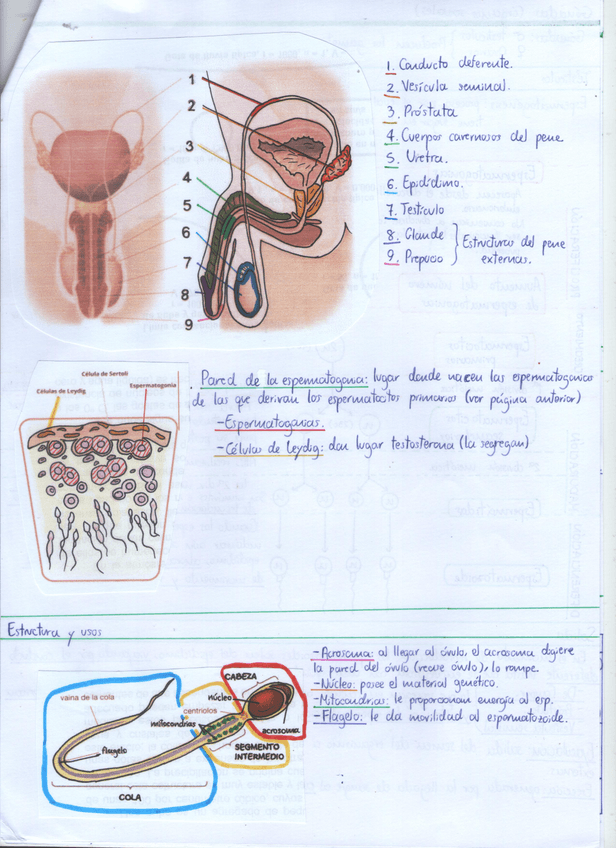 1
2
3
4
5
6
7
8
9
1. Conducto deferente.
2. Vesícula seminal.
3. Próstata
4. Cuerpos cavernosos del pene
5. Uretra.
6. Epidídimo.
7. Testículo
8. Glande
9. Prepucio
Estructuras del pene
externas.
Célula de Sertoli
Células de Leydig
Espermatogonia
Pared de la espermatogonia: lugar donde nacen las espermatogonias
de las que derivan los espermatocitos primarios (ver página anterior)
-Espermatogonias.
-Células de Leydig: dan lugar testosterona (la segregan)
Estructura y usos
CABEZA
vaina de la cola
núcleo
centriolos
mitocondrias
acrosoma
flagelo
SEGMENTO
INTERMEDIO
COLA
-Acrosoma: al llegar al óvulo, el acrosoma digiere
la pared del óvulo (recue óvulo), lo rompe.
-Núcleo: posee el material genético.
-Mitocondrias: le proporcionan energía al esp.
-Flagelo: le da movilidad al espermatozoide.